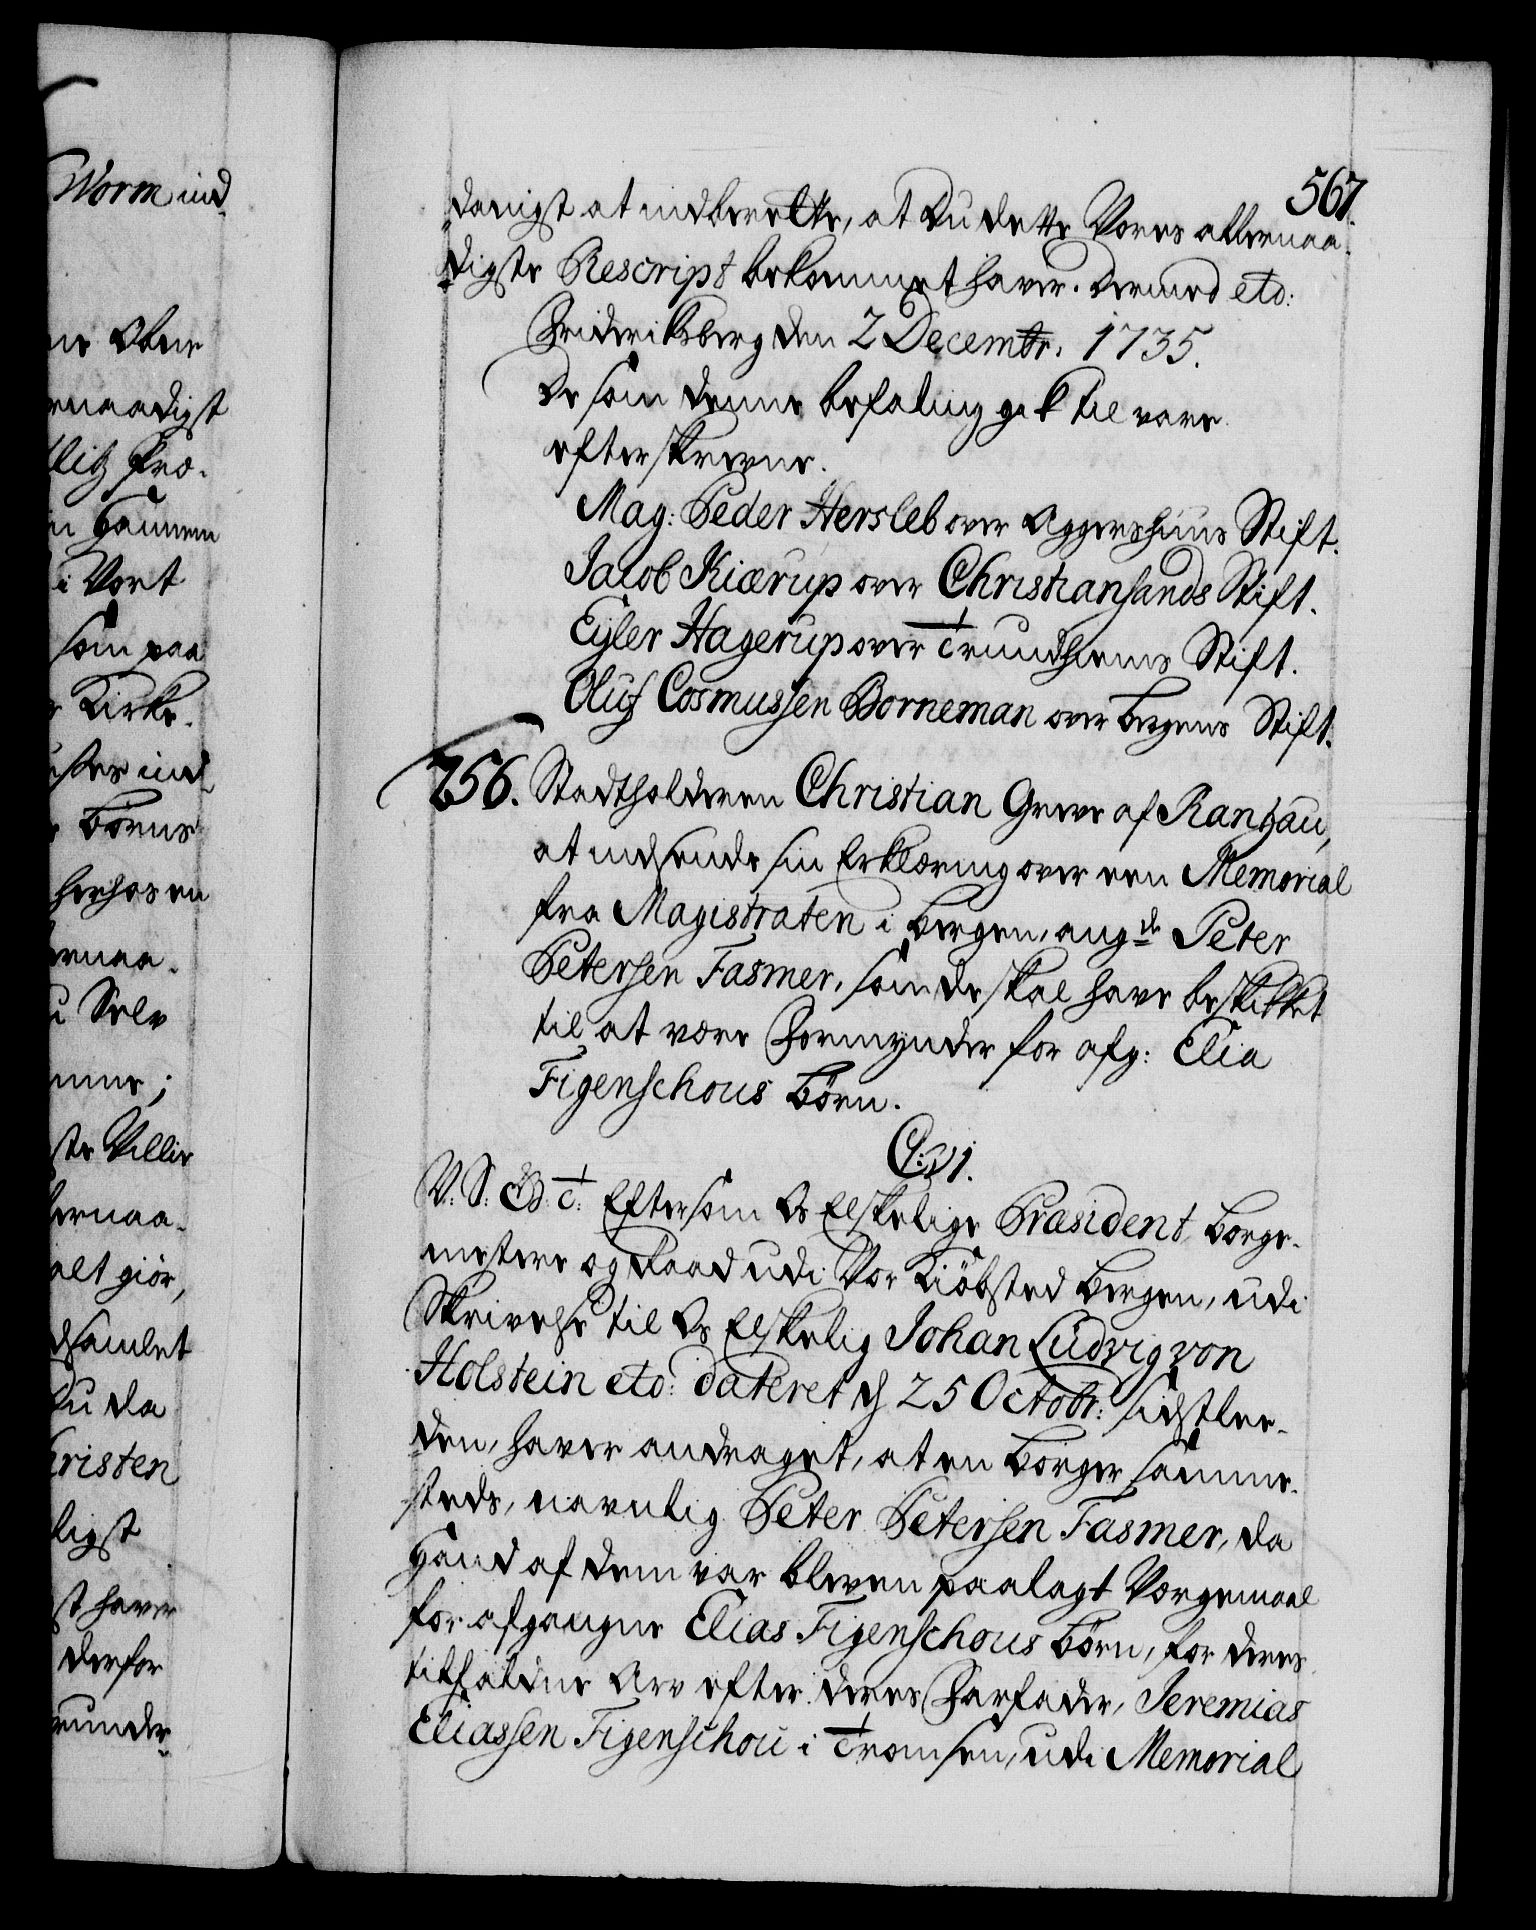 567.
danigst at indberette, at Du dette Vores allernaa-
digste Rescript bekommet haver. Dermed etc:
Frideriksberg den 2 Decembr. 1735.
De som denne befaling gik til vare
efterskrevne.
Mag: Peder Hersleb over Aggershuus Stift.
Jacob Kiærup over Christiansands Stift.
Eyler Hagerup over Trundhiems Stift.
Oluf Cosmussen Borneman over Bergens Stift.
256. Stadtholderen Christian Greve af Rantzau,
at indsende sin Erklæring over een Memorial
fra Magistraten i Bergen, angde Peter
Petersen Fasmer, som de skal have beskikket
til at være Formynder for afg: Elia
Figenschous Børn.
C: VI.
V: S: Eftersom Os Elskelige Præsident, Borge-
mestere og Raad udi Vor Kiöbsted Bergen, udi
Skrivelse til Os Elskelig Johan Ludvig von
Holstein etc: dateret d 25 Octobr: sidstlee-
den, haver andraget, at en Borger samme-
steds, navnlig Peter Petersen Fasmer, da
Hand af dem var bleven paalagt Værgemaal
for afgangne Elias Figenschous Børn, for deres
tilfaldne Arv efter deres Farfader, Jeremias
Eliassen Figenschou i Tromsen, udi Memorial
Worm ind-
Kirke.
Børns
i Vort
som paa
Selv
alt giör,
Du da
risten
ligst
st haver
derfor